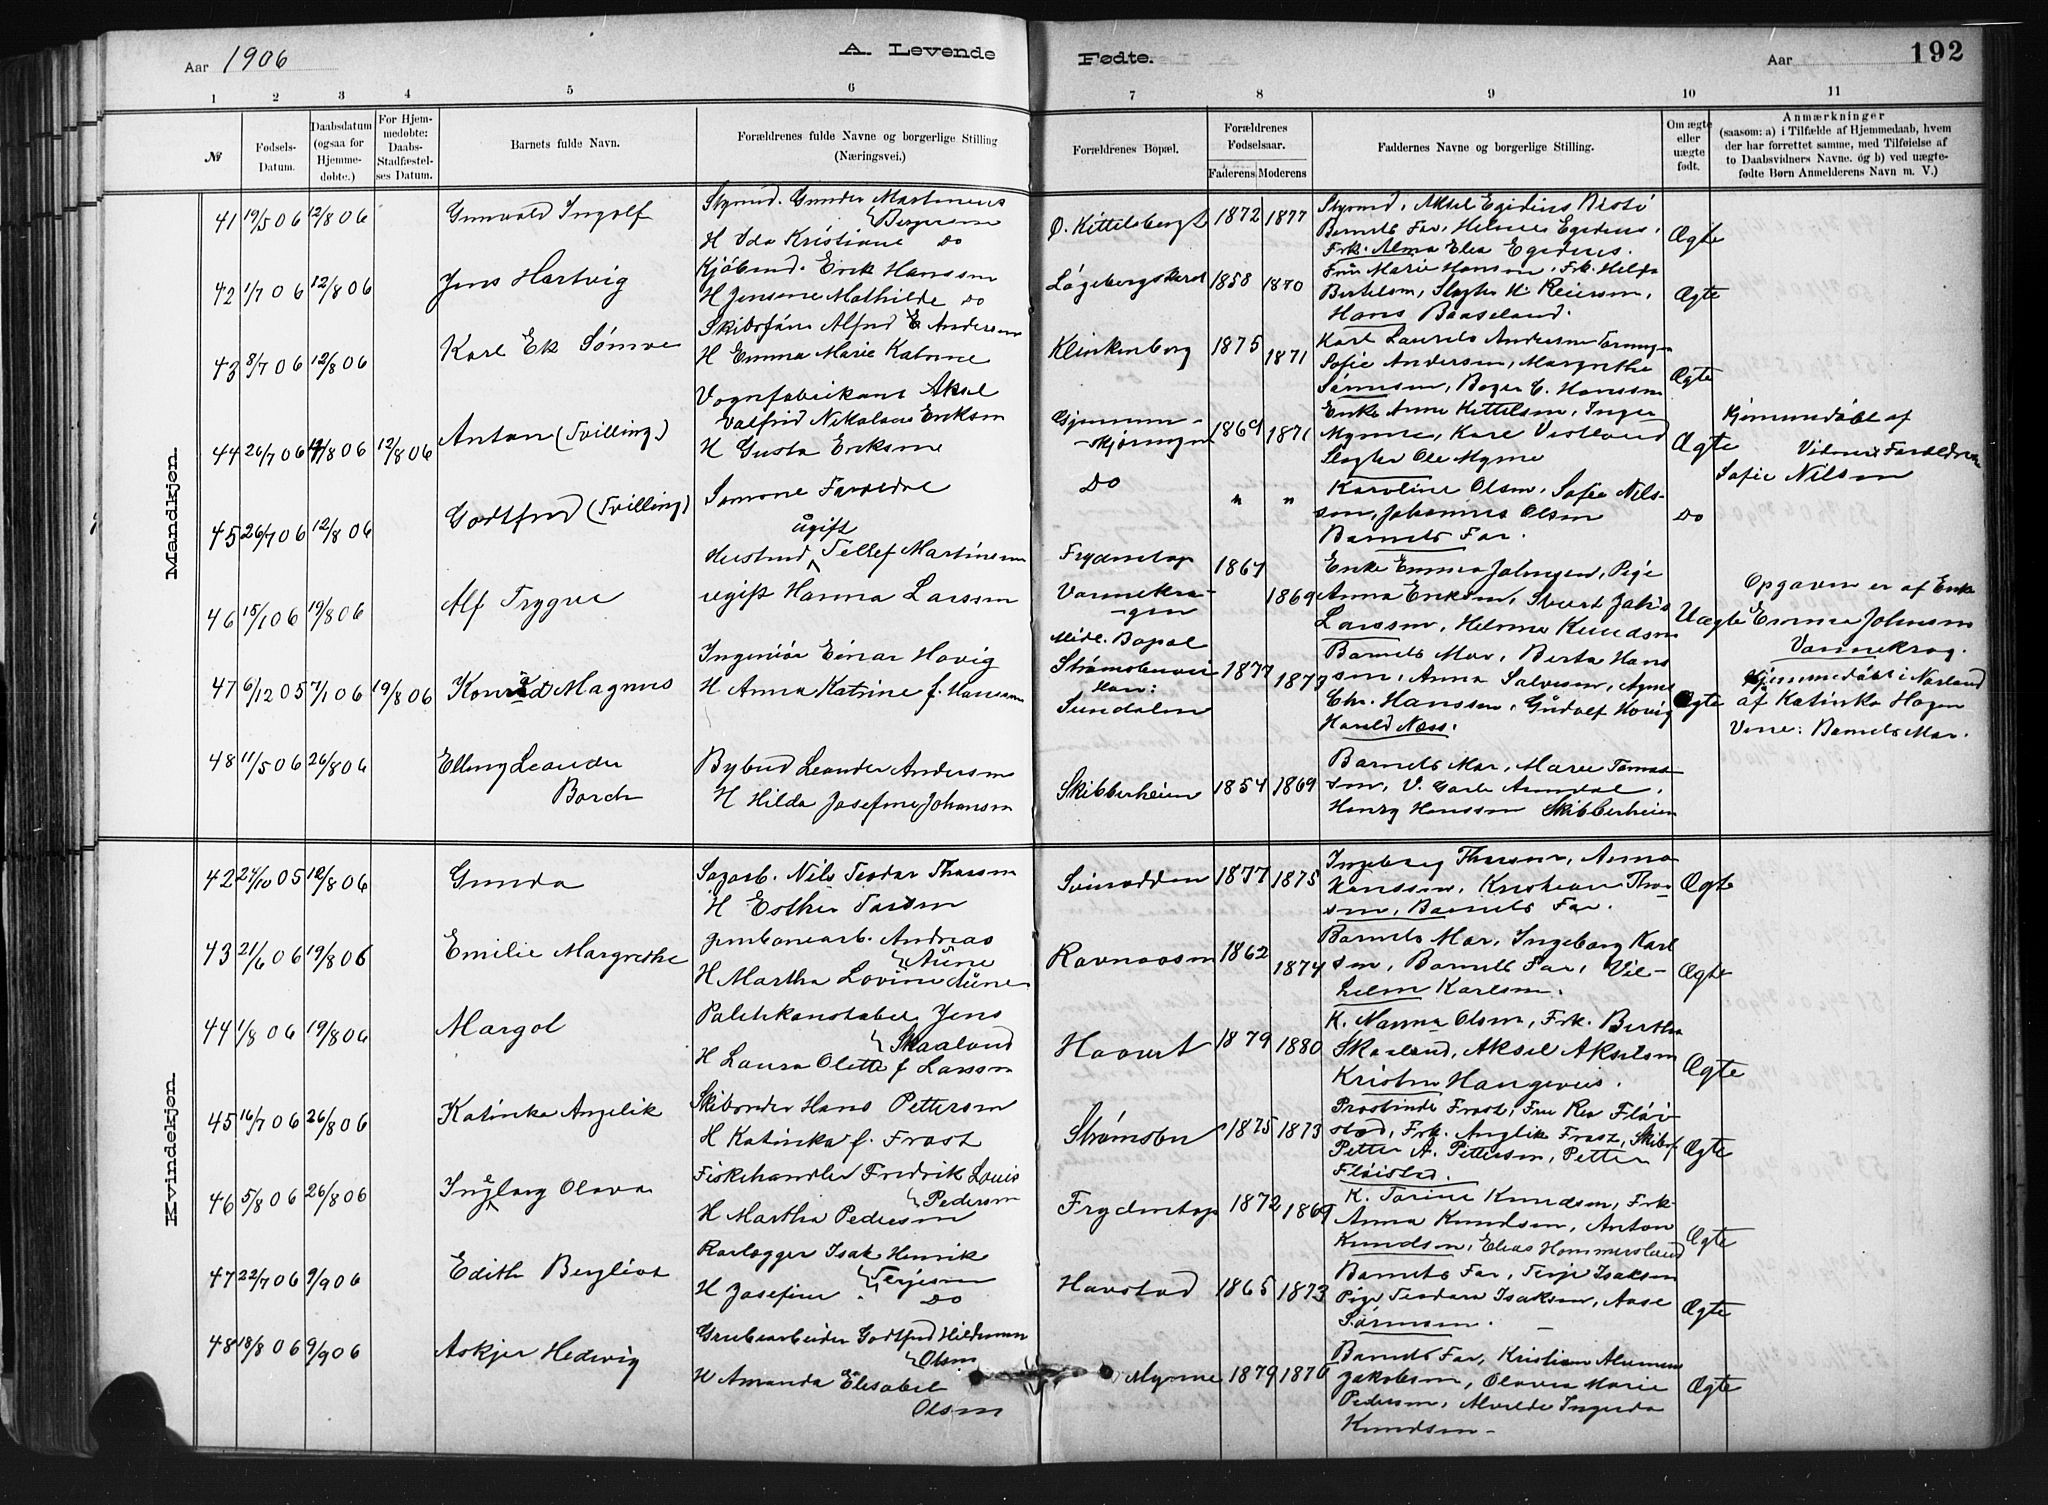 Aar 1906
A. Levende
Fødte.
Aar
192
1 2 3 4 5 6 7 8 9 10 11
№
Fødsels-
Datum.
Daabsdatum
(ogsaa for
Hjemme-
døbte.)
For Hjem-
medøbte:
Daabs-
Stadfæstel-
ses Datum.
Barnets fulde Navn.
Forældrenes fulde Navne og borgerlige Stilling
(Næringsvei.)
Forældrenes Bopæl.
Forældrenes
Fødselsaar.
Faderens Moderens
Faddernes Navne og borgerlige Stilling.
Om ægte
eller
uægte
født.
Anmærkninger
(saasom: a) i Tilfælde af Hjemmedaab, hvem
der har forrettet samme, med Tilføielse af
to Daabsvidners Navne. óg b) ved uægte-
fødte Børn Anmelderens Navn m. V.)
Mandkjøn.
41 19/5 06 12/8 06
Gunvald Ingolf
Styrmd. Gunder Martinius
H Ida Kristiane Do
Ø. Kittelsbergt
1872 1877
Styrmd, Aksel Egidius
Barnets Far, Helmer Egidius,
Frk. Alma Elea Egidius.
Ægte
42 1/7 06 12/8 06
Jens Hartvig
Kjøbmd. Erik Hanssen
H Jensine Mathilde Do
1858 1870
Fru Marie Hansen, Frk. Hilda
Bertelsen, Slagter H. Reiersen,
Hans Baaseland.
Ægte
43 8/7 06 12/8 06
Karl Ek
Skibsfører Alfred E Andersen
H Emma Marie Katrine
Klinkenberg
1875 1871
Karl Laurits Andersen
Sofie Andersen, Margrethe
Sørensen, Hanssen
Ægte
44 26/7 06 8 06 12/8 06
Anton (Tvilling)
Vognfabrikant Aksel
Valfrid Nikolaus Eriksen
H Gusta Eriksen
Gjennem-
-skjæringen
1869 1871
Enke Anne Kittelsen, Inger
Myrene, Karl Vestland
Slagter Ole Myrene
Ægte
Hjemmedøbt af
Vidner: Forældrene
Sofie Nilsen
45 26/7 06 12/8 06
Godtfred (Tvilling)
Samme Forældre
Do
" "
Karoline Olsen, Sofie Nils-
sen, Johannes Olsen
Barnets Far.
Do
46 15/1 06 19/8 06
Alf Trygve
ugift
Tellef Martinsen
ugift Hanna Larssen
Frydentop
Vannekra-
-gen
1867 1869
Enke Emma Johnsen, Pige
Anna Eriksen,
Larssen, Helene Knudsen
Uægte
Opgaven er af Enke
Emma Johnsen
Vannekrag.
47 6/12 05 7/1 06 19/8 06
Konrad Magnus
Ingeniør Einar Hovig
H Anna Katrine f. Hanssen
Midl. Bopæl
Strømsbuvei
Han:
Sundalen
1877 1879
Barnets Mor, Berta Hans
sen, Anna Salvesen, Agnes
Chr. Hanssen, Gudolf Hovig
Harald Næss.
Ægte
Hjemmedøbt i Norland
af Katinka Hagen
Barnets Mor.
48 11/5 06 26/8 06
Elling Leander
Borch
Bybud Leander Andersen
H Hilda Josefine Johansen
Skibberheien
1854 1869
Barnets Mor, Marie Tomas-
sen, V. Carl Arendal,
Henry Hanssen Skibberheien
Kvindekjøn.
42 27/10 05 12/8 06
Gunda
Sagarb. Nils Teodor Tharsen
H Esther Tarsen
Svinodden
1877 1875
Ingeborg Tharsen, Anna
Hanssen, Kristian Thar-
sen, Barnets Far.
Ægte
43 21/6 06 19/8 06
Emilie Margrethe
Jernbanearb. Andreas
Aune
H Martha Lovine Aune
Ravnaasen
1862 1874
Barnets Mor, Ingeborg Karl
sen, Barnets Far, Vil-
helm Karlsen.
Ægte
44 1/8 06 19/8 06
Margot
Politikonstabel Jens
Skaaland
H Laura Olette f Larssen
1879 1880
K. Nanna Olsen, Frk. Bertha
Skaaland, Aksel Akselsen
Kristen
Ægte
45 16/7 06 26/8 06
Katinka Angelik
Skibsreder Hans Pettersen
H Katinka f. Frost
Strømsbu
1875 1873
Prostinde Frost, Fru Rea Fløi-
stad, Frk. Anglik Frost, Skibsf
Petter A. Pettersen, Petter
Fløistad.
Ægte
46 5/8 06 26/8 06
Ingeborg Olava
Fiskehandler Fredrik Louis
Pedersen
H Martha Pedersen
Frydentop
1872 1869
K. Tarine Knudsen, Frk.
Anna Knudsen, Anton
Knudsen, Elias Hommersland
Ægte
47 22/7 06 9/9 06
Edith Bergliot
Rørlægger Isak Henrik
Terjesen
H Josefine Do
Havstad
1865 1873
Barnets Far, Terje Isaksen
Pige Teodora Isaksen, Aase
Sørensen.
Ægte
48 18/8 06 9/9 06
Askjer Hedevig
Grubearbeider Godtfred Hildeman
Olsen
H Amanda Elisabet
Olsen
Myrene
1879 1876
Barnets Far, Kristian
Jakobsen, Olava Marie
Pedersen, Alvilde Ingerda
Knudsen
Ægte